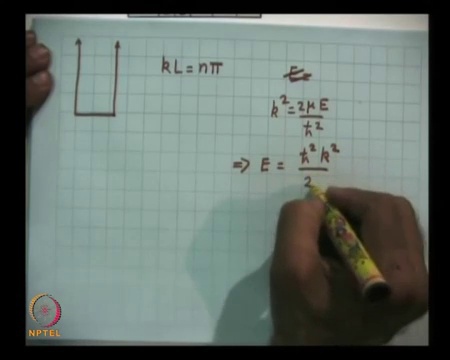 kL = nπ
E =
k² = 2μE / ħ²
⇒ E = ħ² k² / 2
NPTEL